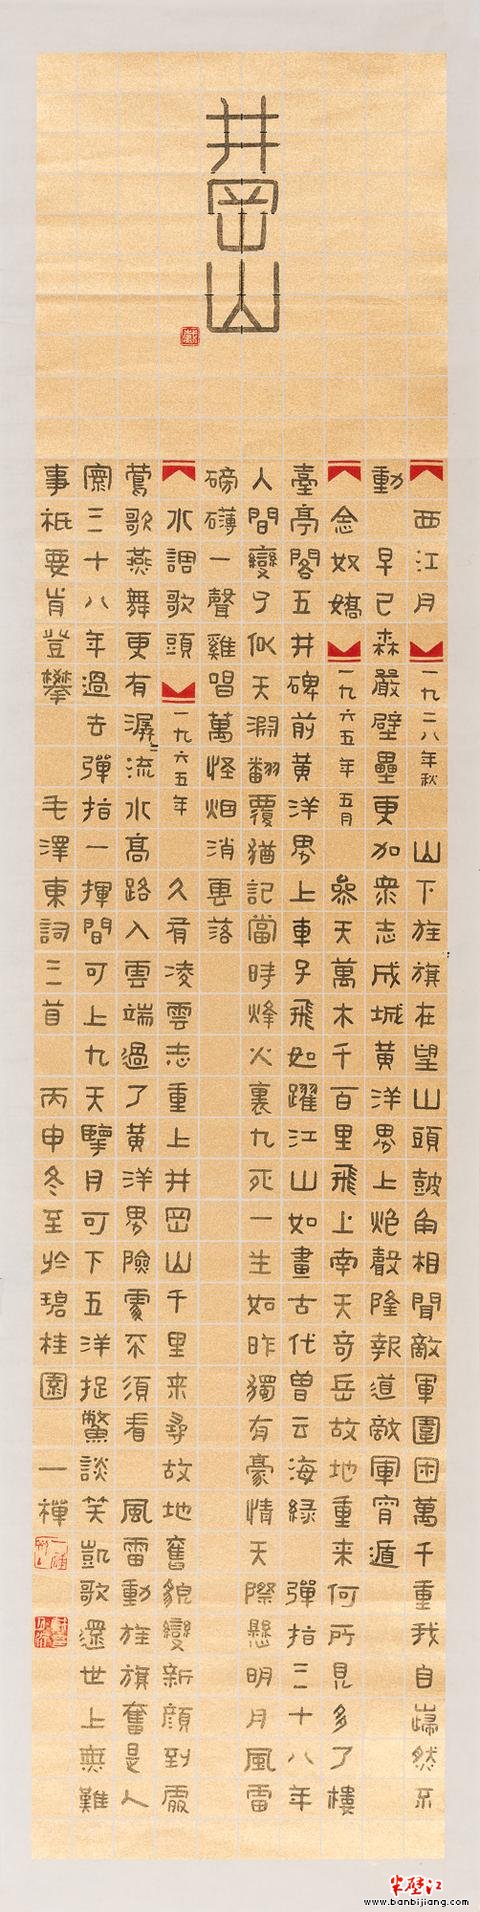 井岡山
西江月 一九二八年秋 山下旌旗在望山頭鼓角相聞敵軍圍困萬千重我自巋然不
動 早已森嚴壁壘更加衆志成城黃洋界上炮聲隆報道敵軍宵遁
念奴嬌 一九六五年五月 參天萬木千百里飛上南天奇岳故地重来何所見多了樓
臺亭閣五井碑前黃洋界上車子飛如躍江山如畫古代曾云海綠 彈指三十八年
人間變了似天淵翻覆猶記當時烽火裏九死一生如昨獨有豪情天際懸明月風雷
磅礴一聲雞唱萬怪烟消雲落
水調歌頭 一九六五年 久有凌雲志重上井岡山千里来尋故地舊貌變新顏到處
鶯歌燕舞更有潺〻流水高路入雲端過了黃洋界險處不須看 風雷動旌旗奮是人
寰三十八年過去彈指一揮間可上九天攬月可下五洋捉鱉談笑凱歌還世上無難
事衹要肯登攀 毛澤東詞三首 丙申冬至於碧桂園 一禪
半壁江
www.banbijiang.com